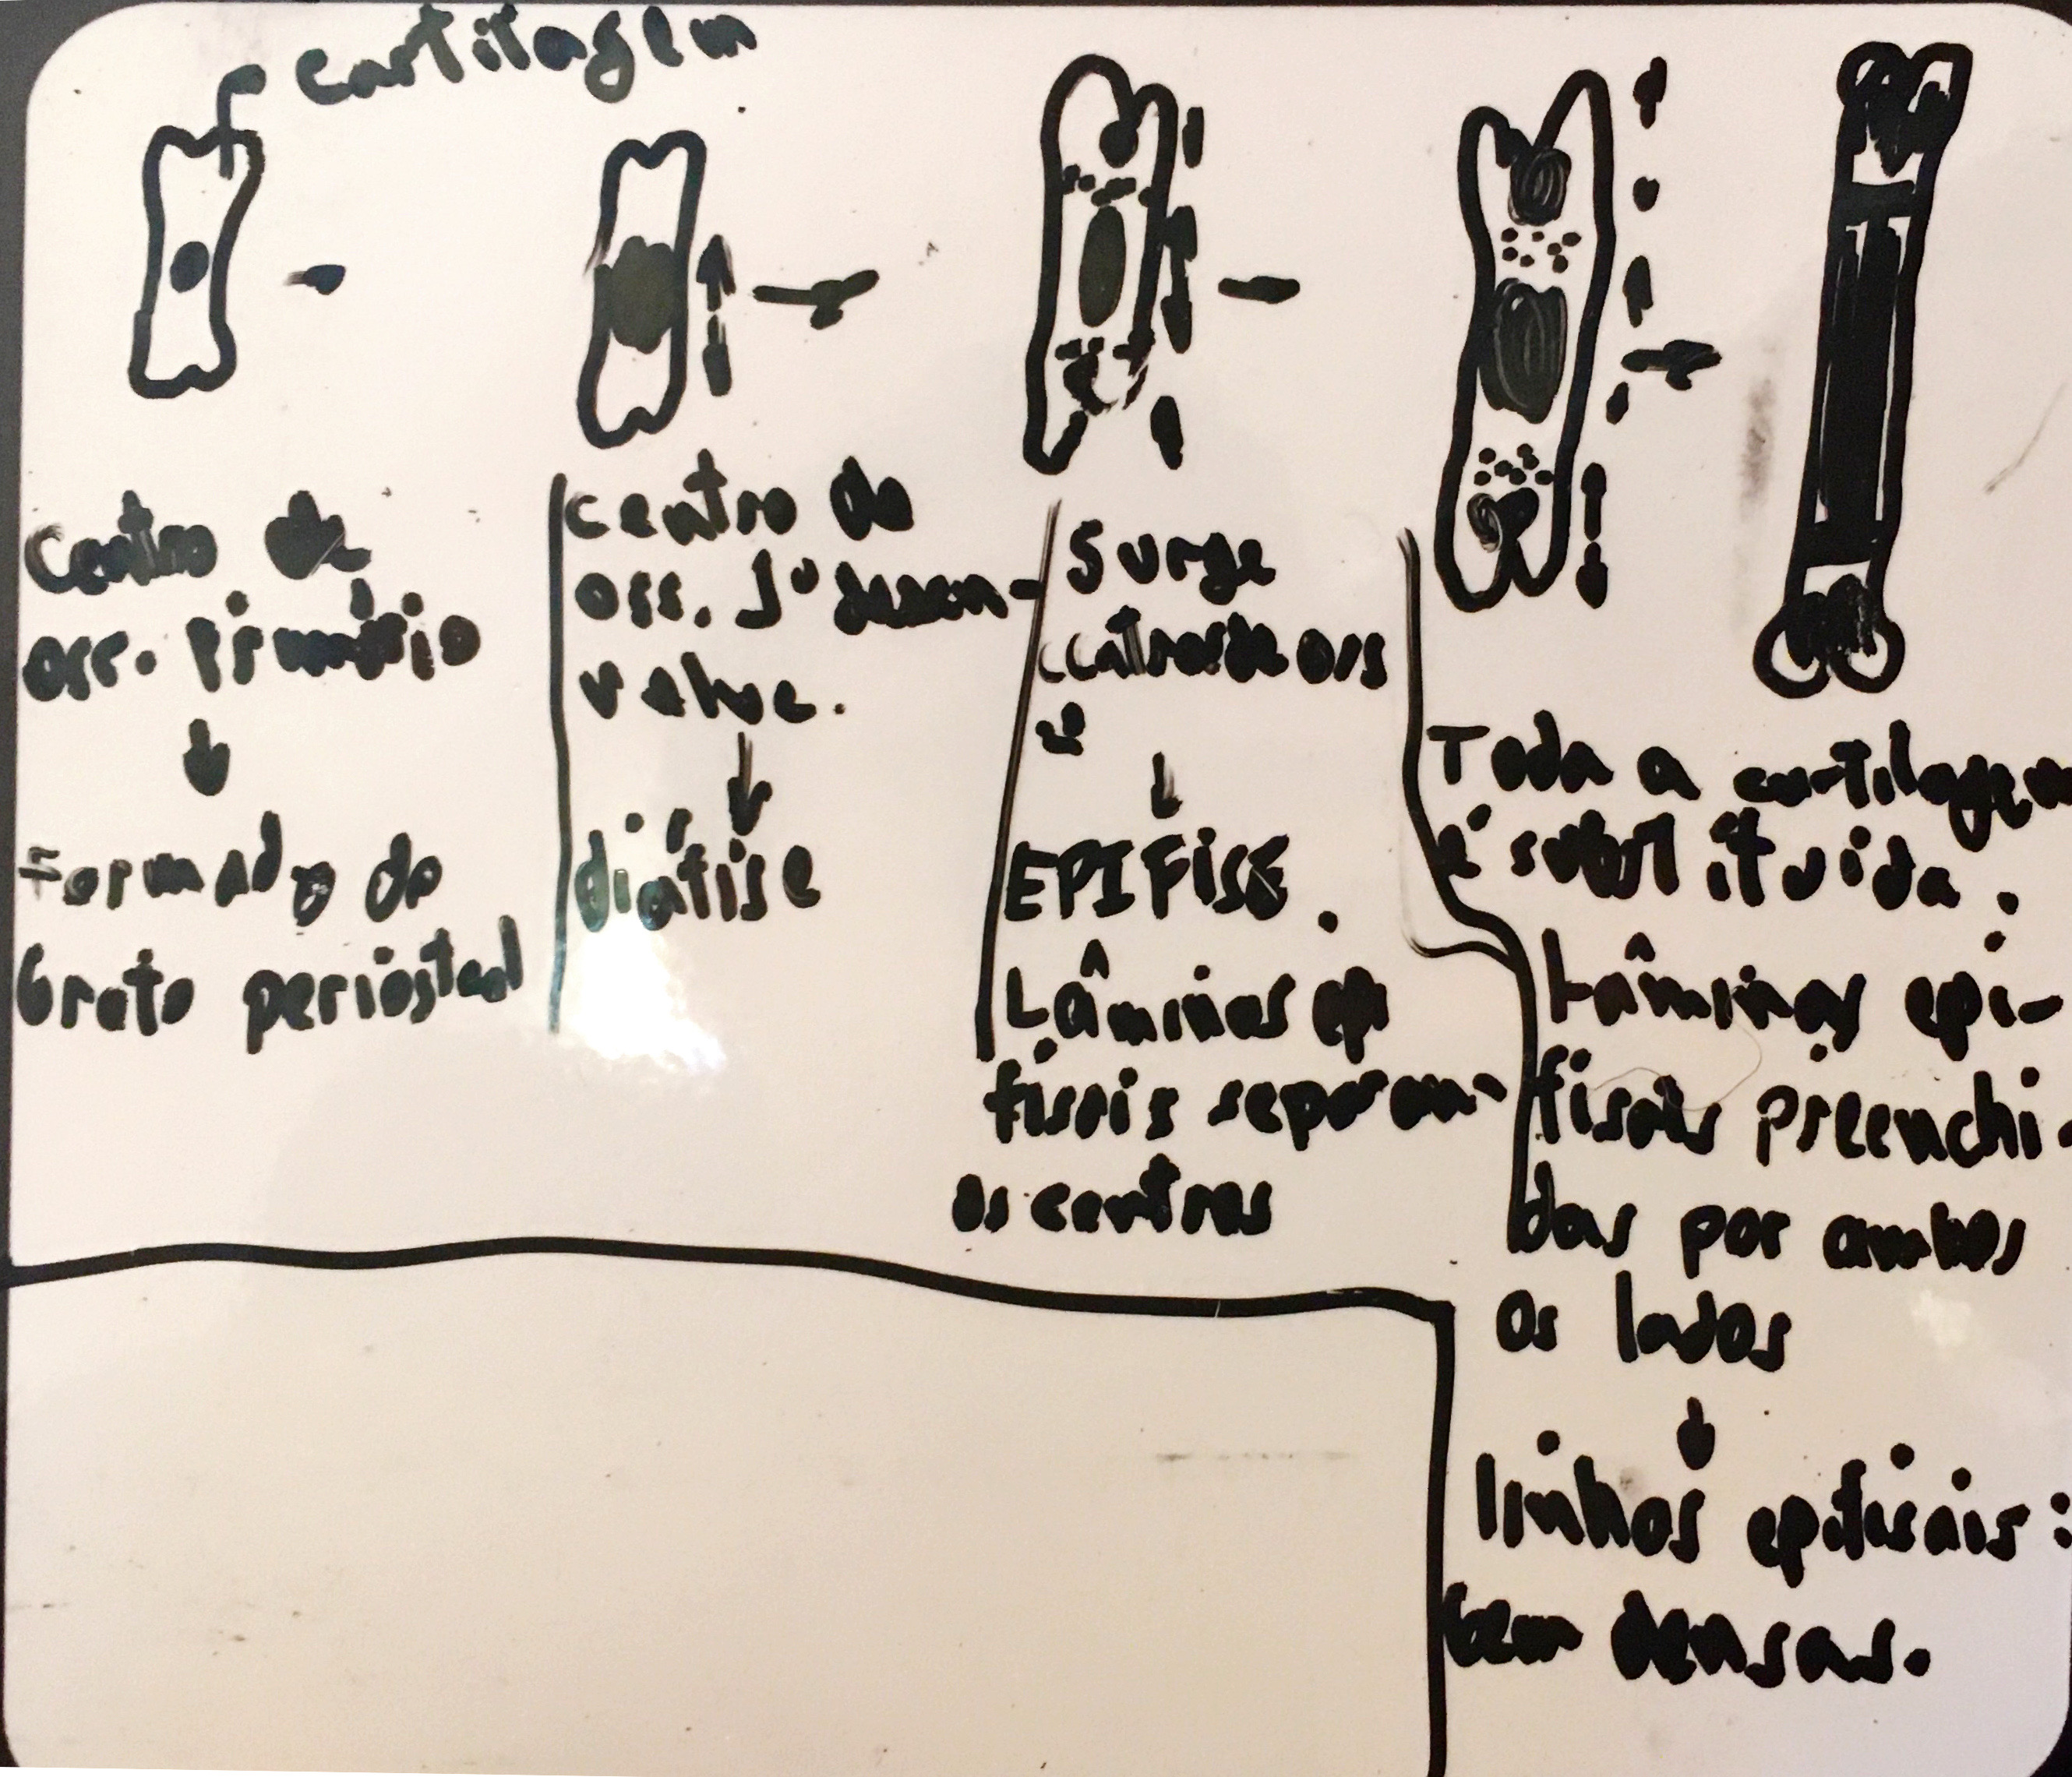 cartilagem
Centro de
oss. Primário
Formado do
broto periósteal
centro de
oss. 1º desen-
volve.
diáfise
Surge
centros de oss
2º
EPIFISE.
Lâminas epi
fisais separam
os centros
Toda a cartilagem
é substituída.
Lâminas epi-
fisais preenchi-
das por ambos
os lados
linhas epifisais:
bem densas.